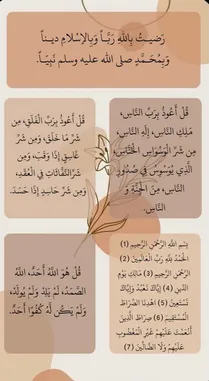 رَضيـتُ بِاللهِ رَبَّـاً وَبِالإسْلامِ ديـناً
وَبِمُحَـمَّدٍ صلى الله عليه وسلم نَبِيّـاً.
قُلْ أَعُوذُ بِرَبِّ النَّاسِ،
مَلِكِ النَّاسِ، إِلَٰهِ النَّاسِ،
مِن شَرِّ الْوَسْوَاسِ الْخَنَّاسِ،
الَّذِي يُوَسْوِسُ فِي صُدُورِ
النَّاسِ، مِنَ الْجِنَّةِ وَ
النَّاسِ.
قُلْ أَعُوذُ بِرَبِّ الْفَلَقِ، مِن
شَرِّ مَا خَلَقَ، وَمِن شَرِّ
غَاسِقٍ إِذَا وَقَبَ، وَمِن
شَرِّ النَّفَّاثَاتِ فِي الْعُقَدِ،
وَمِن شَرِّ حَاسِدٍ إِذَا حَسَدَ.
بِسْمِ اللَّهِ الرَّحْمَٰنِ الرَّحِيمِ (1)
الْحَمْدُ لِلَّهِ رَبِّ الْعَالَمِينَ (2)
الرَّحْمَٰنِ الرَّحِيمِ (3) مَالِكِ يَوْمِ
الدِّينِ (4) إِيَّاكَ نَعْبُدُ وَإِيَّاكَ
نَسْتَعِينُ (5) اهْدِنَا الصِّرَاطَ
الْمُسْتَقِيمَ (6) صِرَاطَ الَّذِينَ
أَنْعَمْتَ عَلَيْهِمْ غَيْرِ الْمَغْضُوبِ
عَلَيْهِمْ وَلَا الضَّالِّينَ (7)
قُلْ هُوَ اللَّهُ أَحَدٌ، اللَّهُ
الصَّمَدُ، لَمْ يَلِدْ وَلَمْ يُولَدْ،
وَلَمْ يَكُن لَّهُ كُفُوًا أَحَدٌ.